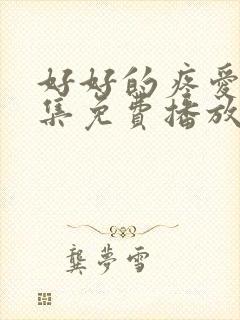 好好的疼爱
集免费播放
龔夢雪